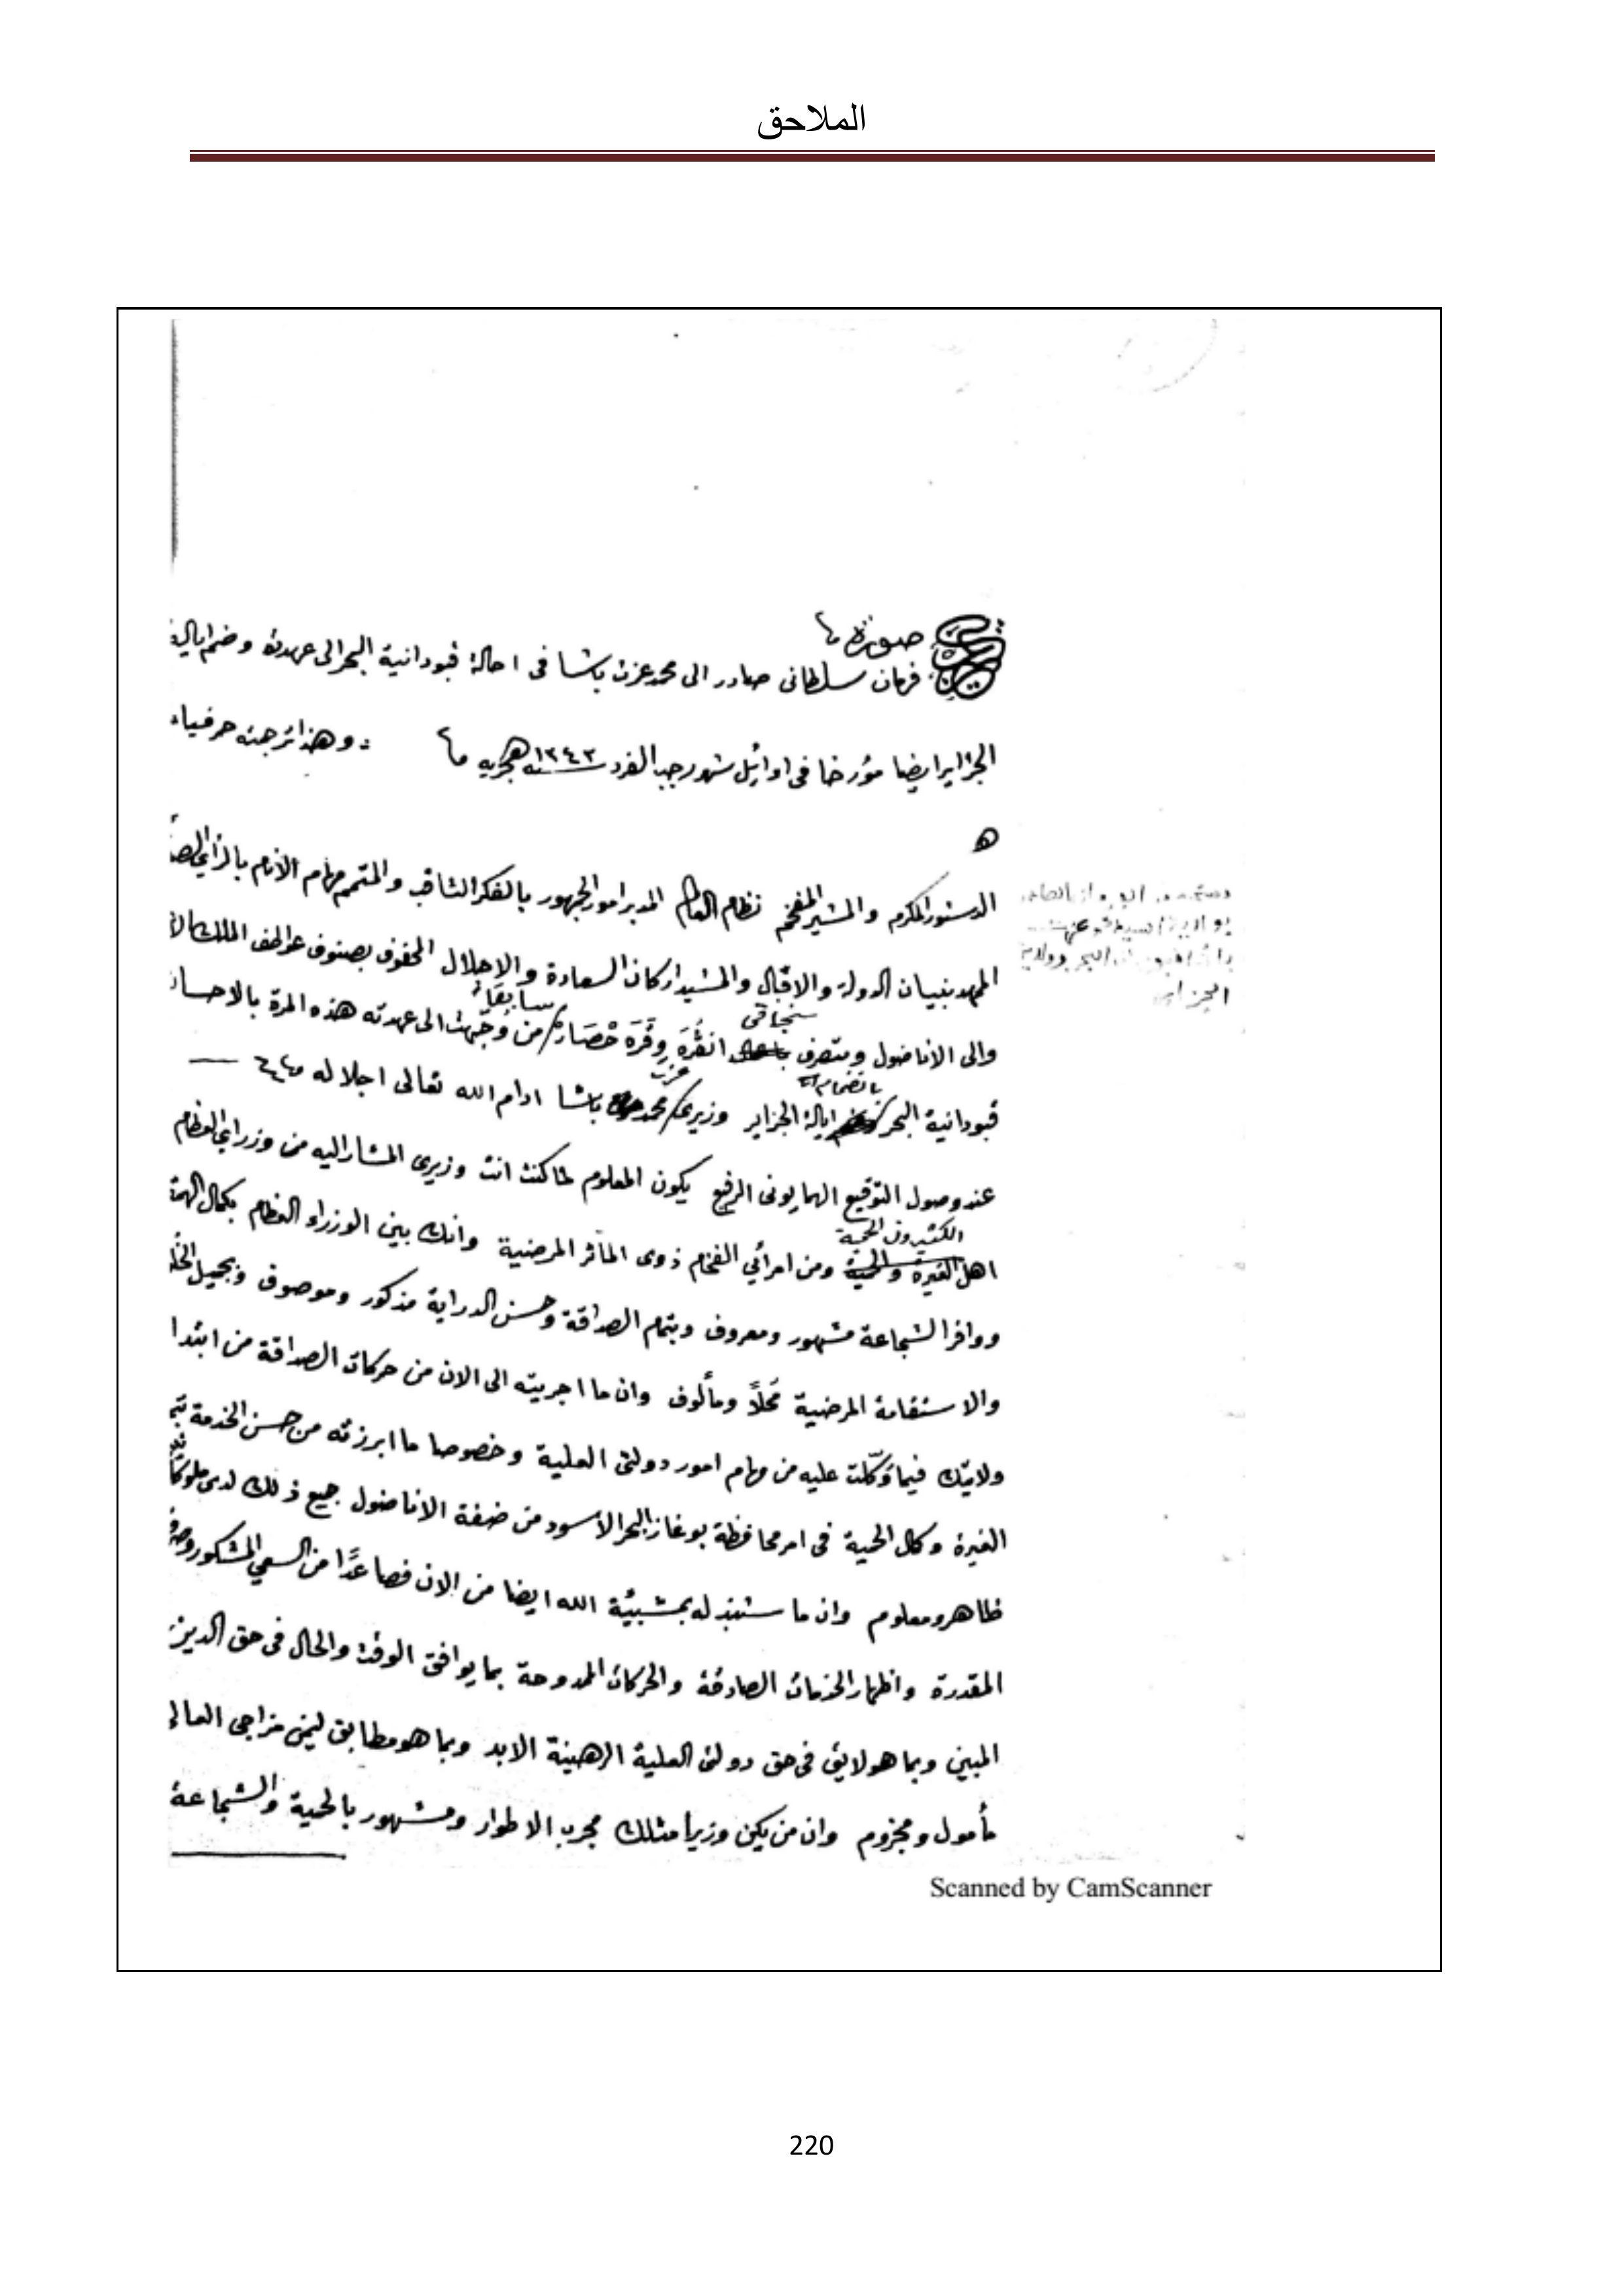 الملاحق
صورة
فرمان سلطانى صادر الى محمد عزت باشا فى احالة قبودانية البحر الى عهدته وضم ايالة
الجزاير ايضا مؤرخا فى اوائل شهر رجب الفرد سنه ١٢٤٣ هجريه وهذا ترجمته حرفياء
ه
الدستور المكرم والمشير المفخم نظام العالم المدبر امور الجمهور بالفكر الثاقب والمتمم مهام الانام بالرأي
الممهد بنيان الدولة والاقبال والمشيد اركان السعادة والاجلال المحفوف بصنوف عواطف الملك
سنجاقى سابقاً
والى الأناضول ومتصرف انقره وقره حصار من وجّهت الى عهدته هذه المرة بالاحسان
بانضمام عزت
قبودانية البحر ايالة الجزاير وزيرى محمد باشا ادام الله تعالى اجلاله
عند وصول التوقيع الهمايونى الرفيع يكون المعلوم لما كنت انت وزيرى المشار اليه من وزرائي العظام
الكثيرون الحمية
اهل الغيرة والحمية ومن امرائي الفخام ذوى المآثر المرضية وانك بين الوزراء العظام بكمال الهمة
ووافر الشجاعة مشهور ومعروف وبتمام الصداقة وحسن الدراية مذكور وموصوف وبجميل
والاستقامة المرضية محلاً ومألوف وان ما اجريته الى الان من حركات الصداقة من ابتدا
ولايتك فيما توكّلت عليه من مهام امور دولتى العلية وخصوصا ما ابرزته من حسن الخدمة
الغيرة وكمال الحمية فى امر محافظة بوغاز البحر الاسود من ضفة الاناضول جميع ذلك لدى
ظاهر ومعلوم وان ما ستبذله بمشيئة الله ايضا من الان فصاعدًا من السعي المشكور
المقدرة واظهار الخدمات الصادقة والحركات الممدوحة بما يوافق الوقت والحال فى حق الدين
المبين وبما هو لايق فى حق دولتى العلية الرهينة الابد وبما هو مطابق ليمن مزاجى العالى
مأمول ومجزوم وان من يكن وزيرا مثلك مجرب الاطوار ومشهور بالحمية والشجاعة
الجزاير
Scanned by CamScanner
220